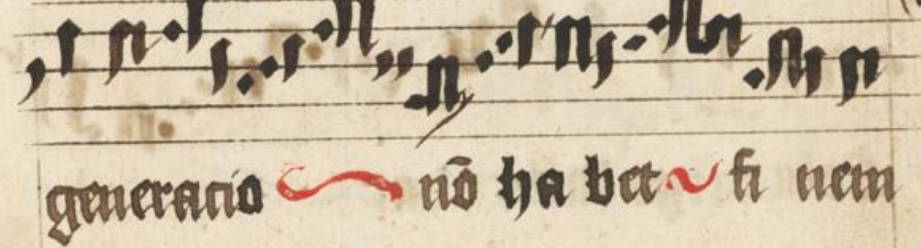 generacio nō ha bet fi nem